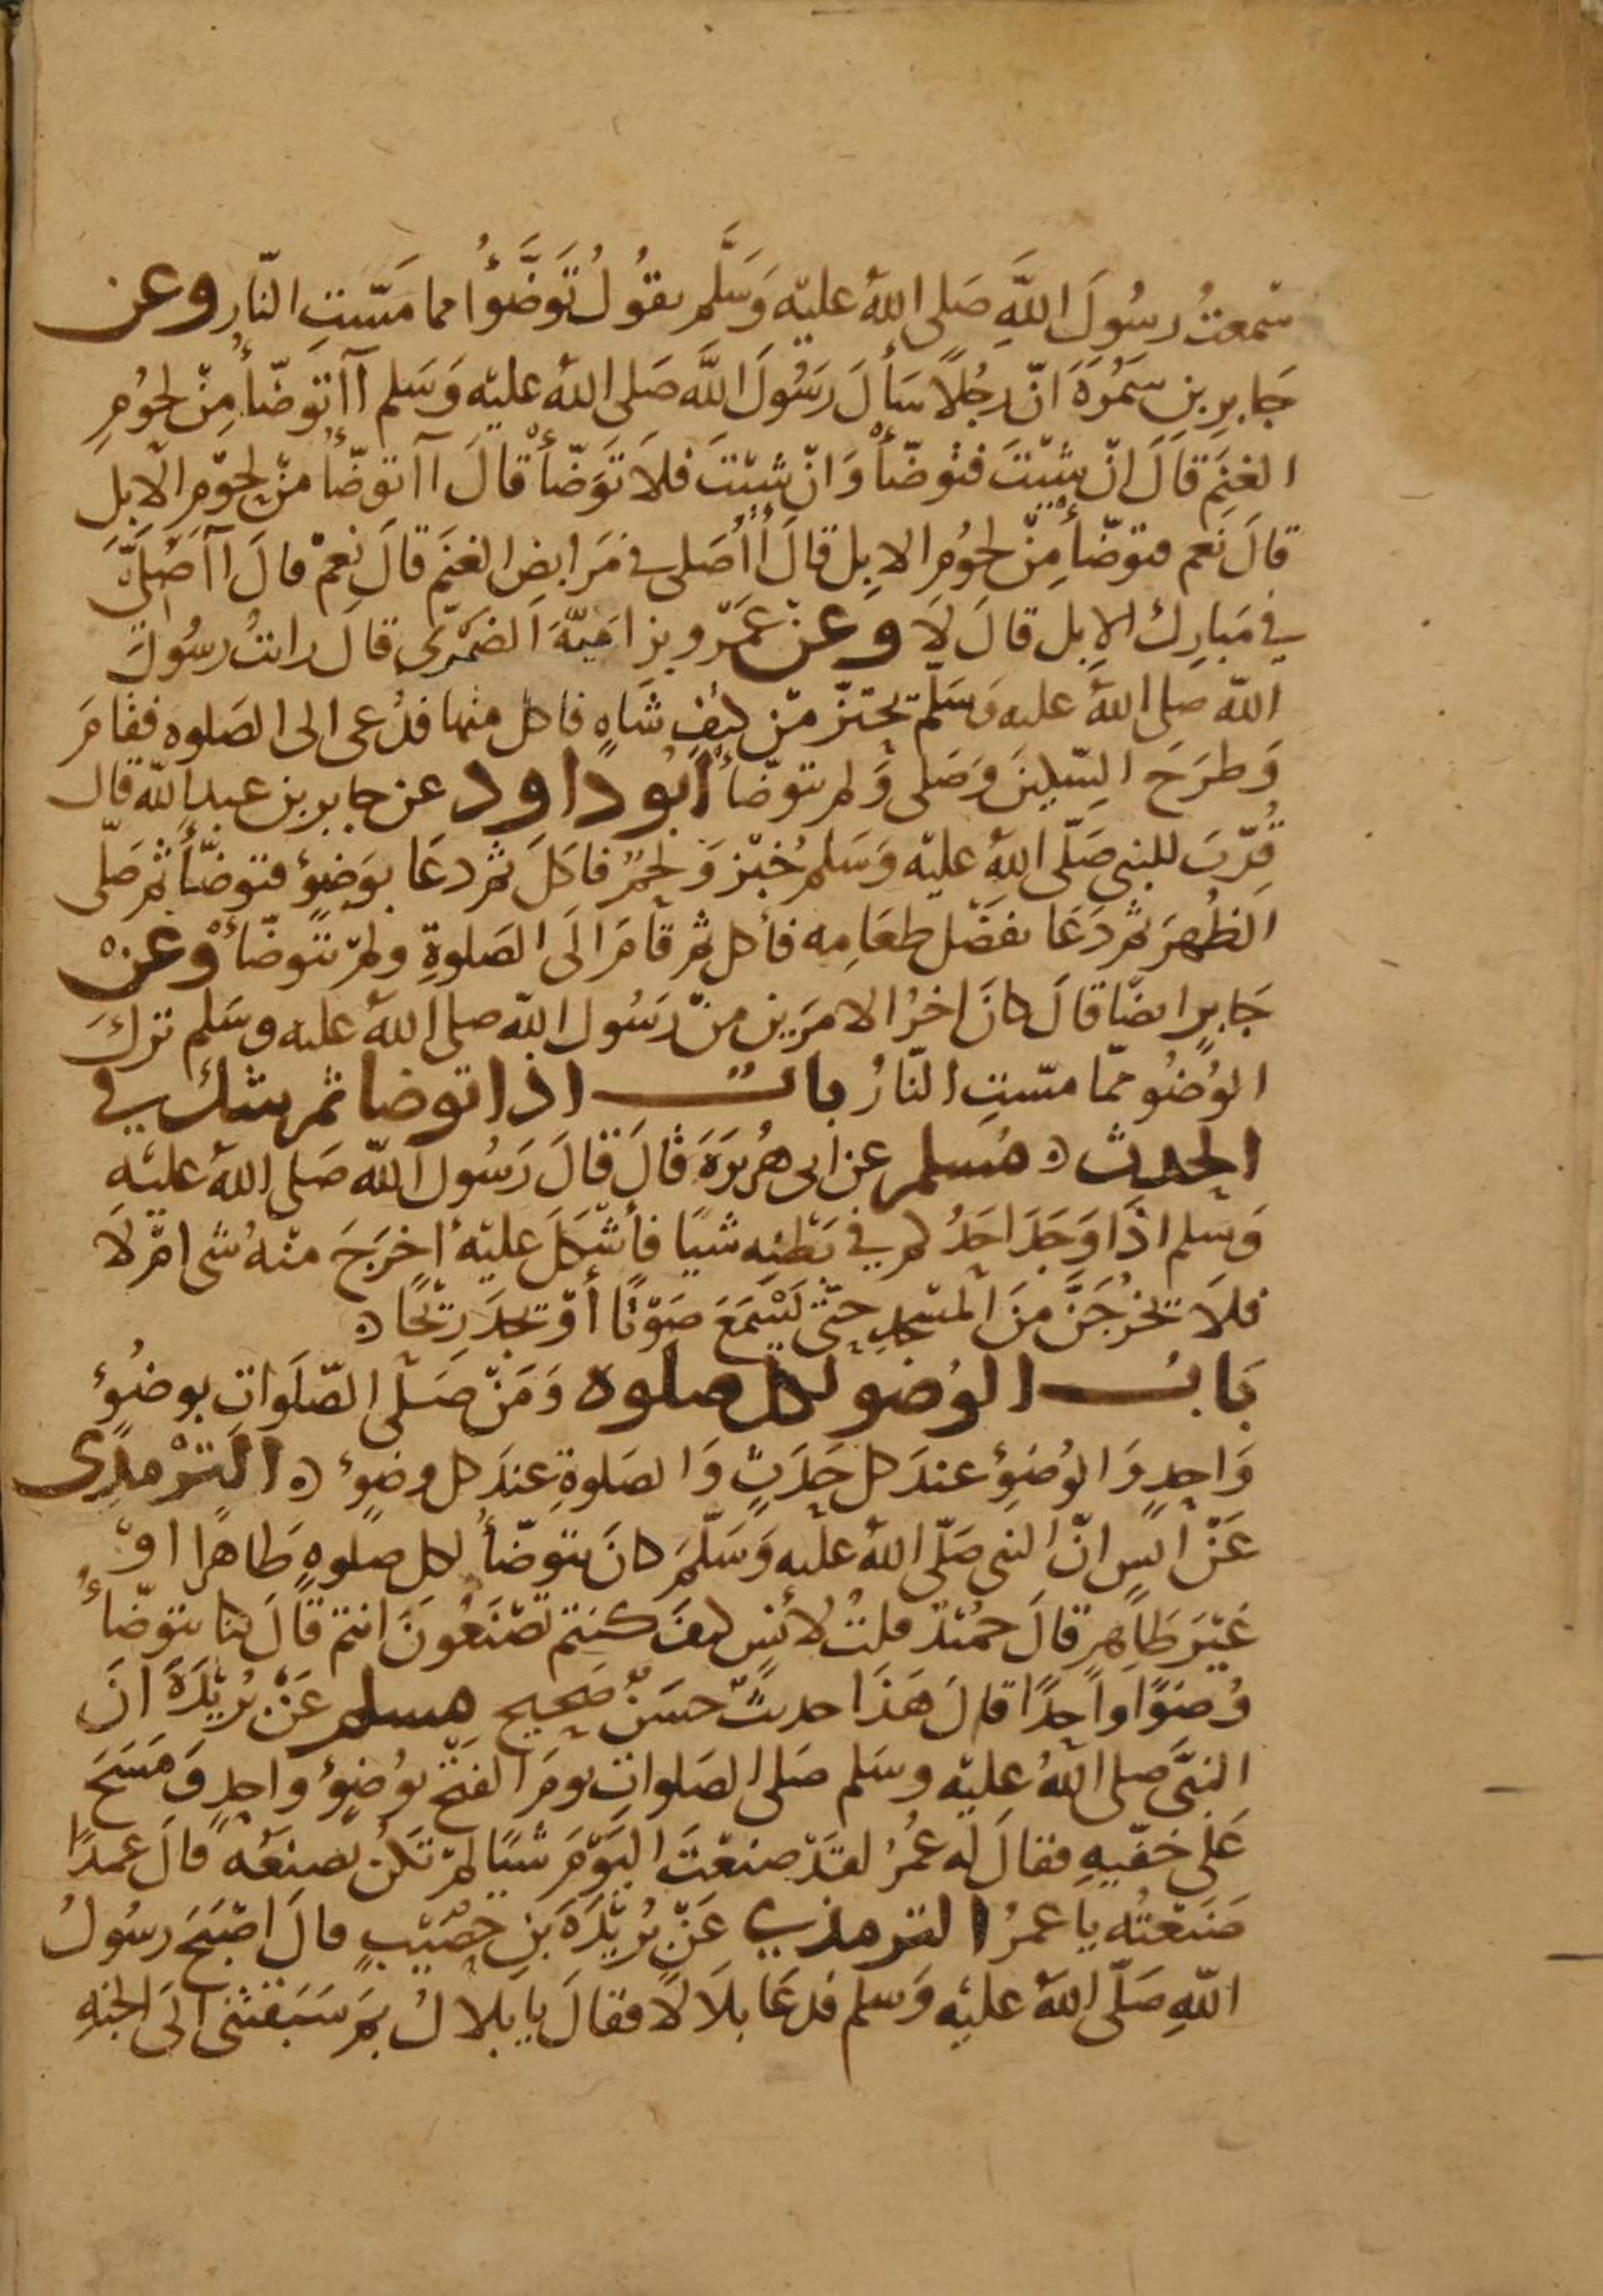 سَمعتُ رسُولَ اللَّهِ صَلى اللهُ عليْه وَسَلَّم يقُولُ تَوَضَّؤُا مما مسّتِ النّار وعن
جَابِرِ بنِ سَمُرَةَ انّ رجُلًا سَأَلَ رَسُولَ اللَّه صَلى اللهُ عليْه وَسَلم آاتوضّأ مِنْ لحُومِ
الغنَمِ قَالَ انْ شِئْتَ فتوضّأْ وَانْ شئتَ فلَا تَوَضّأْ قالَ اآتوضّأُ منْ لحوْمِ الابلِ
قالَ نَعم فتوضّأْ مِنْ لحُومِ الابِل قالَ أأُصَلى في مَرَابضِ الغنَم قَالَ نعمْ قالَ اآصَلّي
في مَبارِك الابل قالَ لَا وعنْ عَمْرو بن اميّةَ الضمْرىّ قالَ رايتُ رسُولَ
اللّه صلى اللهُ عليه وَسَلّم يحتزّ منْ كتِفِ شَاهٍ فاكل منها فدُعى الى الصَلوه فقامَ
وَطرَحَ السّكينَ وَصَلى وَلم يتوضّأْ ابُو داود عن جابر بن عبد اللّه قال
قُرِّبَ للنبي صَلّى اللهُ عليْه وَسَلم خُبْز وَلحمٌ فاكَلَ ثم دعَا بوَضوُءٍ فتوضّأَ ثم صَلّى
الظُهرَ ثم دَعَا بفضْل طعَامِه فأكل ثم قامَ الَى الصَلوةِ ولمْ يتوضّأْ وعنْ
جَابرٍ ايضًا قالَ كانَ اخرُ الامرَين منْ رَسُول اللّه صلى اللهُ عليه وسَلم تركَ
الوُضُو ممّا مسّتِ النّارُ باب اذا توضا ثم شك في
الحدث ه مُسلم عن ابى هُريرَةَ قالَ قالَ رَسُول اللّه صَلى اللهُ عليْه
وَسَلم اذَا وَجَدَ احَدُكم في بَطنِه شيًا فأشْكَلَ عليْهِ اخرَجَ منْهُ شى امْ لَا
فلَا تخرُجَنَّ منَ المسْجدِ حتّى يَسْمَعَ صَوْتًا أوْ يجدَ رِيحًا ه
بَاب الوُضو لكل صلوه وَمَنْ صَلّى الصّلَوات بوضُوءٍ
وَاحدٍ وَالوُضوُءِ عندَ كل حَدَثٍ وَالصَلوةِ عندَ كل وضوءٍ ه التِرْمذِى
عَنْ انسٍ انّ النبى صَلّى اللهُ عليه وَسَلّمَ كانَ يتوضّأُ لكل صلوهٍ طَاهرًا اوْ
غيْرَ طَاهرٍ قالَ حمُيْدٌ قلتُ لأنسٍ كيفَ كنتم تَصْنَعُونَ انتم قالَ كنا نتوضّأُ
وُضوًا واحِدًا قالَ هَذَا حديثٌ حسَنٌ صَحيح مسلم عَنْ بُرَيْدَةَ انَ
النبَّى صلى اللهُ عليْه وسَلم صَلى الصَلواتِ يومَ الفَتْح بوُضوُءٍ واحدٍ وَمَسَحَ
عَلَى خفّيهِ فقالَ لَه عُمرُ لقدْ صنعْتَ اليَوْمَ شَيًا لمْ تكنْ تصنعُه قالَ عمدًا
صَنَعْتُه يا عمرُ الترمذي عَنْ بُرَيْدَةَ بنِ حُصَيْبٍ قالَ اصْبَحَ رسُولُ
اللّهِ صَلّى اللهُ عليْه وَسلم فدعَا بلَالًا فقالَ يا بلالُ بمَ سَبَقتنى الَى الجنهِ